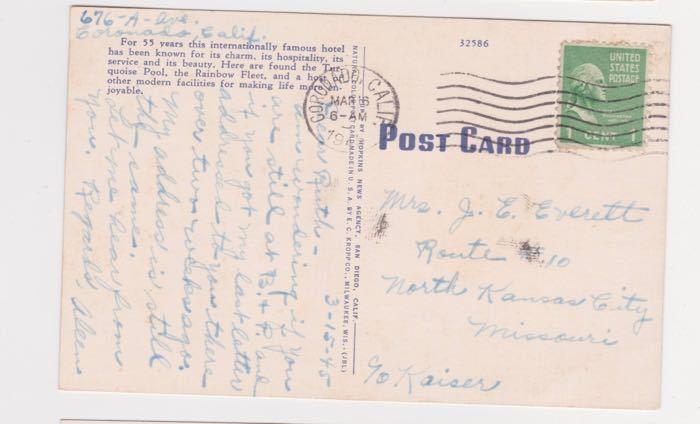 676-A-Ave.
Coronado, Calif.
For 55 years this internationally famous hotel
has been known for its charm, its hospitality, its
service and its beauty. Here are found the Tur-
quoise Pool, the Rainbow Fleet, and a host of
other modern facilities for making life more en-
joyable.
3-15-45
Dear Ruth-
Am wondering if you
are still at B. & P. and
if you got my last letter
addressed to you there
over two weeks ago.
My address is still
the same.
Let me hear from
you. Regards, Aleen
NATURAL COLOR POST CARD MADE IN U.S.A. BY E. C. KROPP CO., MILWAUKEE, WIS. (JBL)
BY HOPKINS NEWS AGENCY, SAN DIEGO, CALIF.
32586
CORONADO, CALIF.
MAR 16
6-AM
19
UNITED
STATES
POSTAGE
1 CENT 1
POST CARD
Mrs. J. E. Everett
Route 10
North Kansas City
Missouri
c/o Kaiser